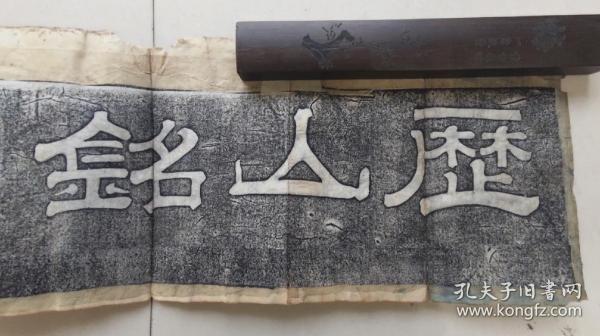 歷山銘
孔夫子旧书网
www.kongfz.com